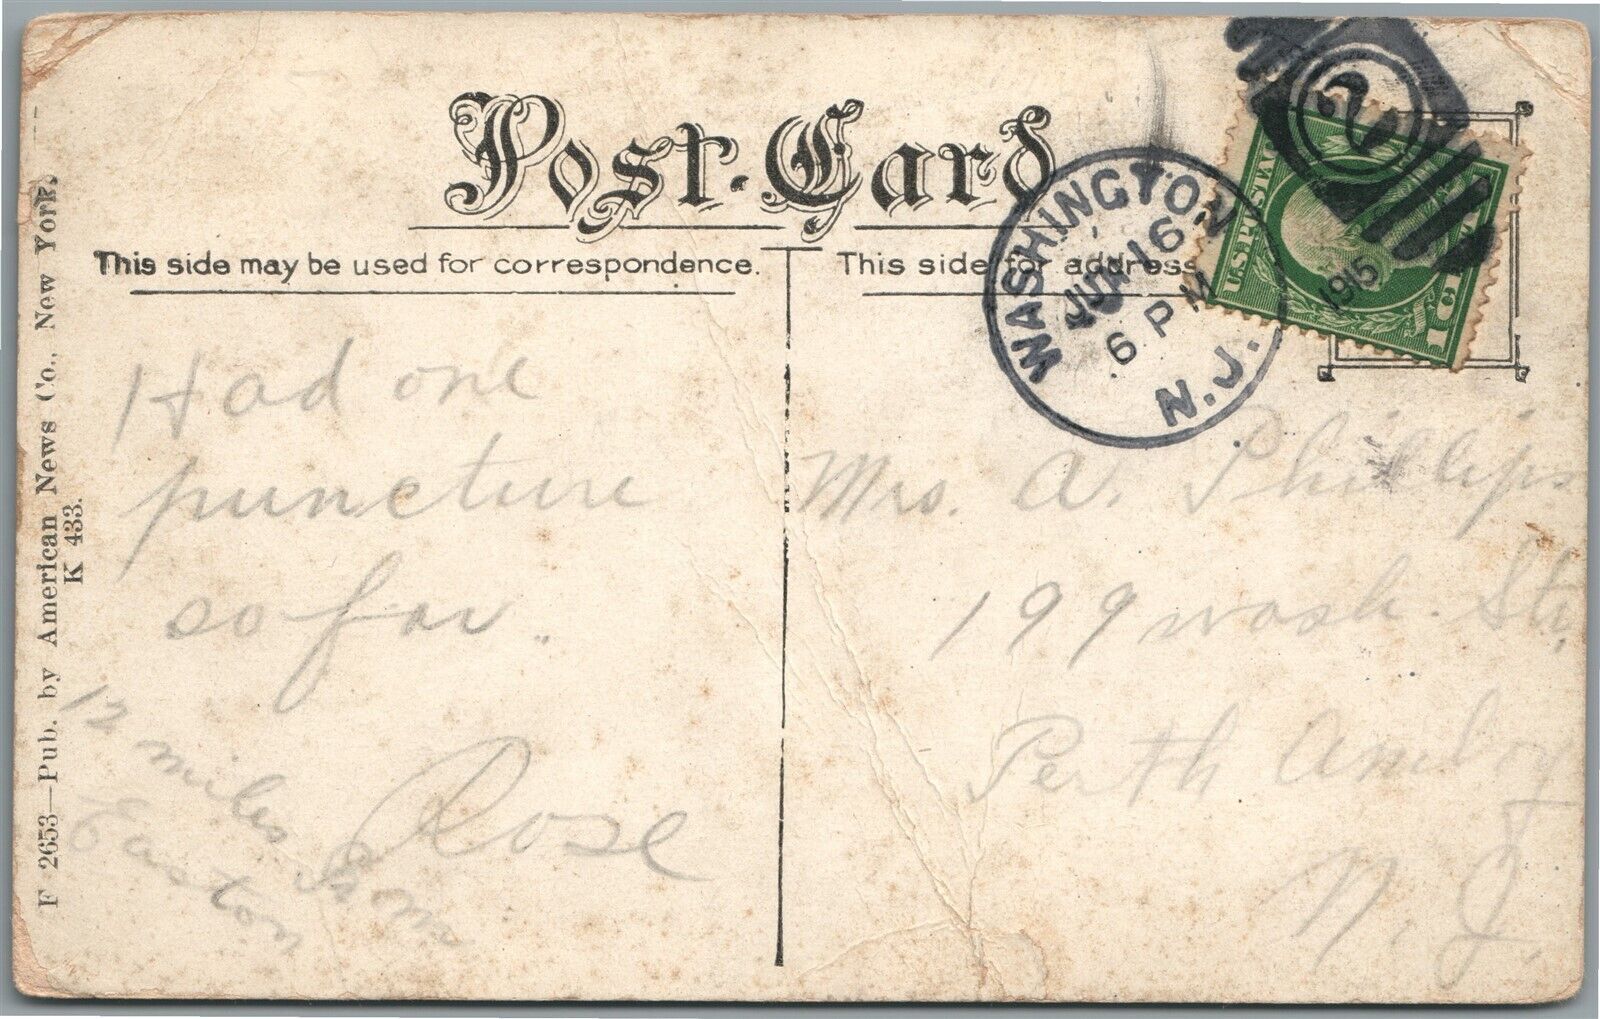 Post-Card
This side may be used for correspondence.
This side for address
WASHINGTON
JUN 16
6 PM
1915
N.J.
2
U.S. POSTAGE
1 CENT
F 2653—Pub. by American News Co., New York.
K 433.
Had one
puncture
so far.
Rose
12 miles from
Easton
Mrs. A. Phillips
199 Wash. Str.
Perth Amboy
N. J.